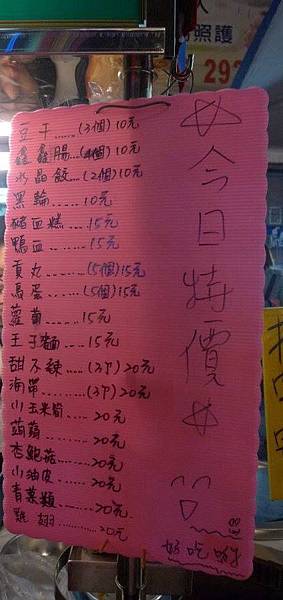 豆干......(3個)10元
鑫鑫腸...(4個)10元
水晶餃...(2個)10元
黑輪......10元
豬血糕....15元
鴨血......15元
貢丸......(5個)15元
鳥蛋......(5個)15元
蘿蔔......15元
王子麵....15元
甜不辣....(3P)20元
海帶......(3P)20元
小玉米筍...20元
蒟蒻......20元
杏鮑菇.....20元
小油皮.....20元
青菜類.....20元
雞翅......20元
今日特價
好吃喲
照護
292